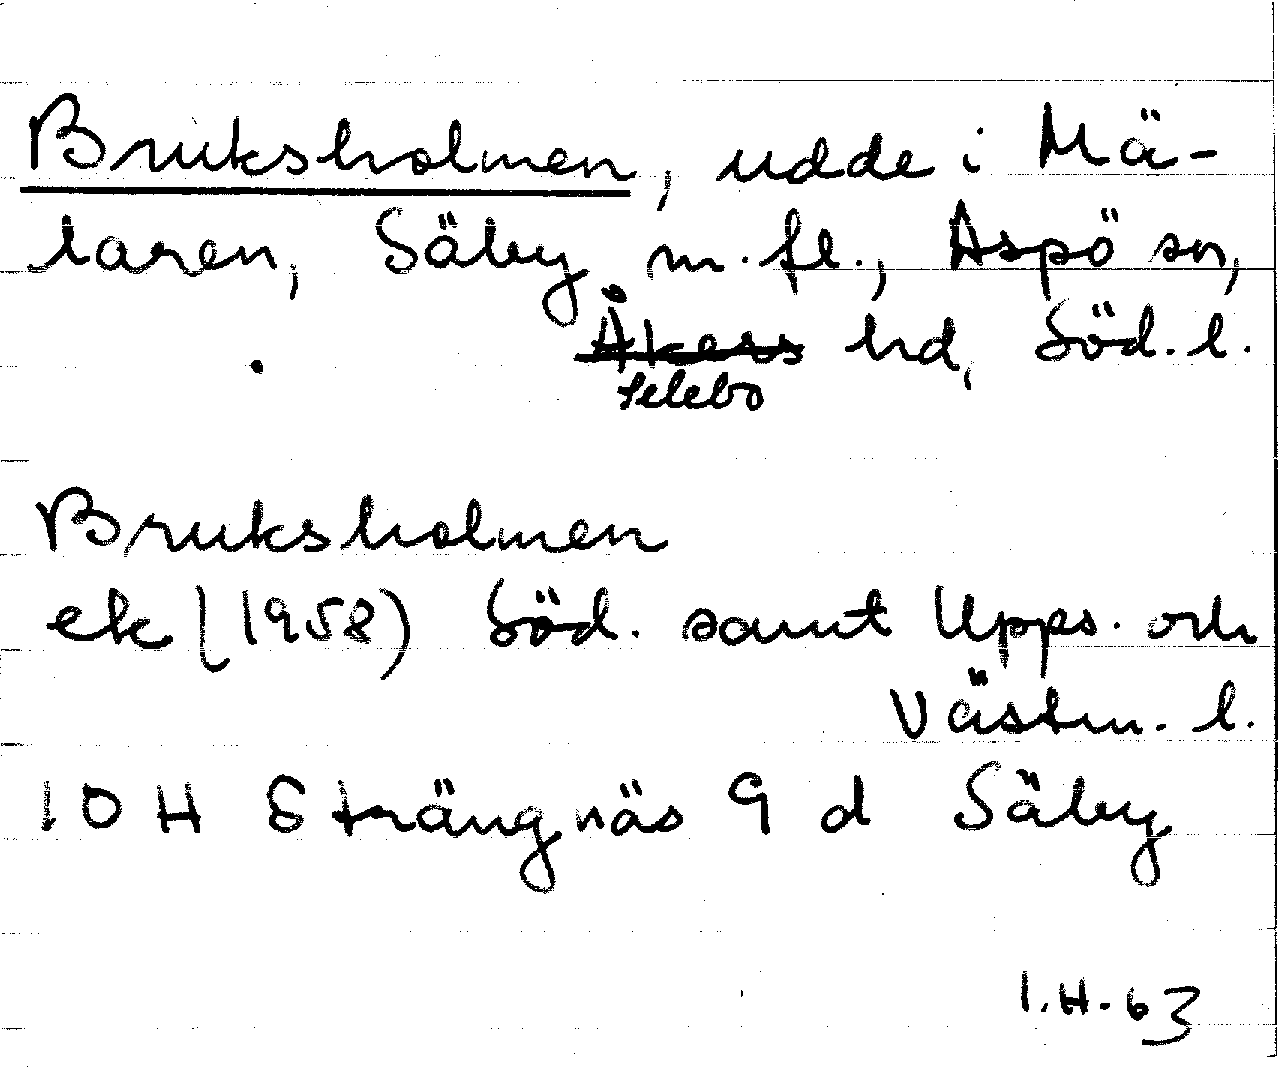 Bruksholmen, udde i Mä-
laren, Säby m.fl., Aspö sn,
Åkers hd, Söd. l.
Selebo
Bruksholmen
ek (1958) Söd. samt Upps. och
Västm. l.
10 H Strängnäs 9 d Säby
I.H. 63